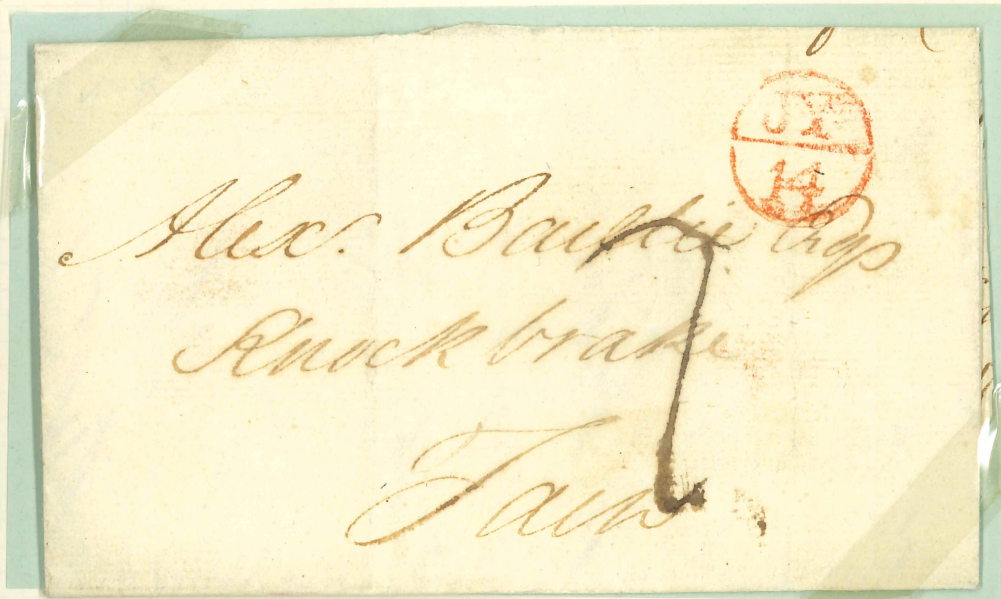 JY
14
Alex. Baillie Esqr
7
Knockbrake
Tain